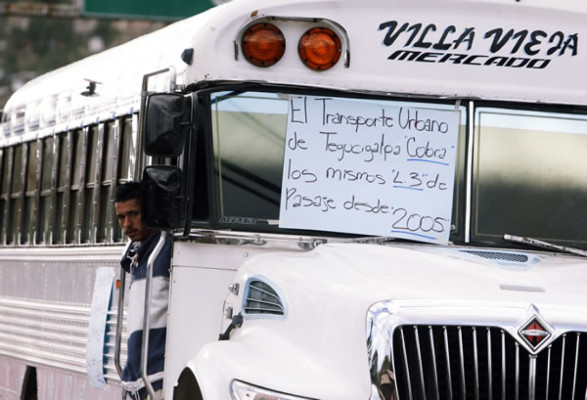 VILLA VIEJA
MERCADO
El Transporte Urbano
de Tegucigalpa "Cobra"
los mismos "L.3" de
Pasaje desde "2005"